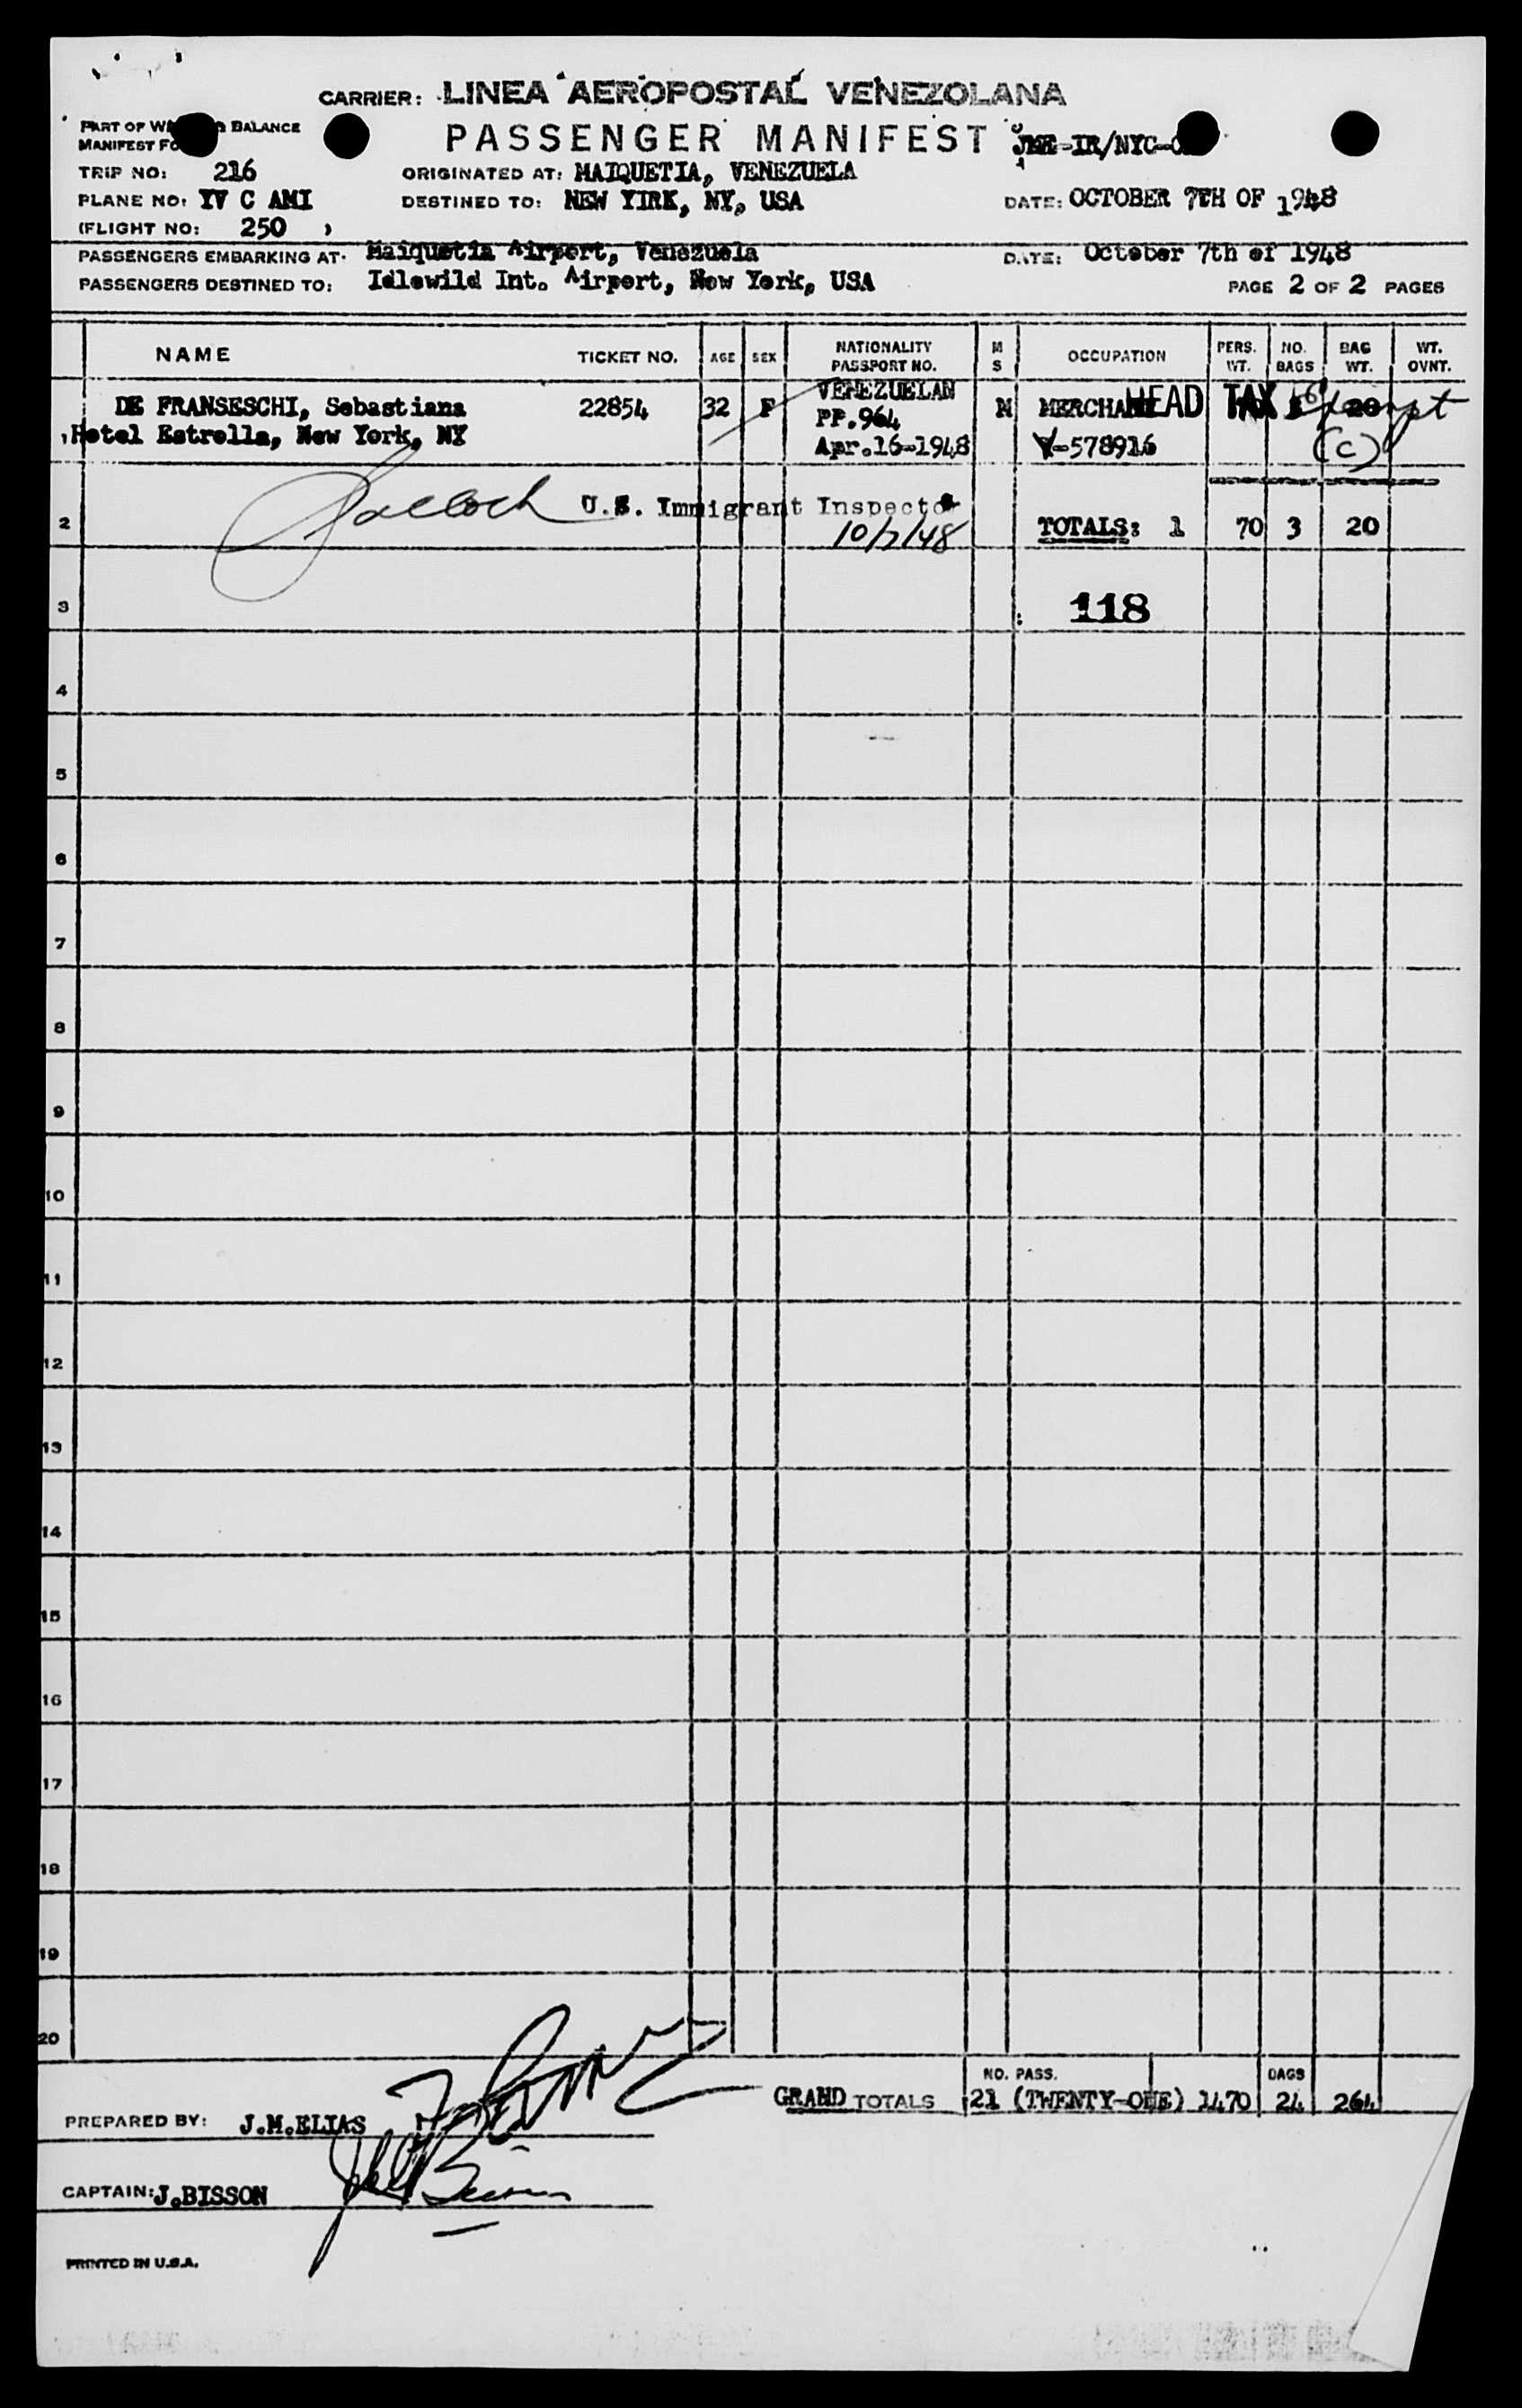 CARRIER: LINEA AEROPOSTAL VENEZOLANA
PART OF BALANCE
PASSENGER MANIFEST
MANIFEST
TRIP NO: 216 ORIGINATED AT: MAIQUETIA, VENEZUELA
PLANE NO: YV C AMI DESTINED TO: NEW YIRK, NY, USA DATE: OCTOBER 7TH OF 1948
(FLIGHT NO: 250 )
PASSENGERS EMBARKING AT: Maiquetia Airport, Venezuela DATE: October 7th of 1948
PASSENGERS DESTINED TO: Idlewild Int. Airport, New York, USA PAGE 2 OF 2 PAGES
NAME TICKET NO. AGE SEX NATIONALITY PASSPORT NO. M S OCCUPATION PERS. WT. NO. BAGS BAG WT. WT. OVNT.
DE FRANSESCHI, Sebastiana 22854 32 F VENEZUELAN M MERCHANT HEAD TAX Exempt
Hotel Estrella, New York, NY PP.964
Apr.16-1948 V-578916 (C)
2 U.S. Immigrant Inspector TOTALS: 1 70 3 20
10/7/48
3 118
4
5
6
7
8
9
10
11
12
13
14
15
16
17
18
19
20
NO. PASS. BAGS
GRAND TOTALS 21 (TWENTY-ONE) 1470 24 264
PREPARED BY: J.M.ELIAS
CAPTAIN: J.BISSON
PRINTED IN U.S.A.